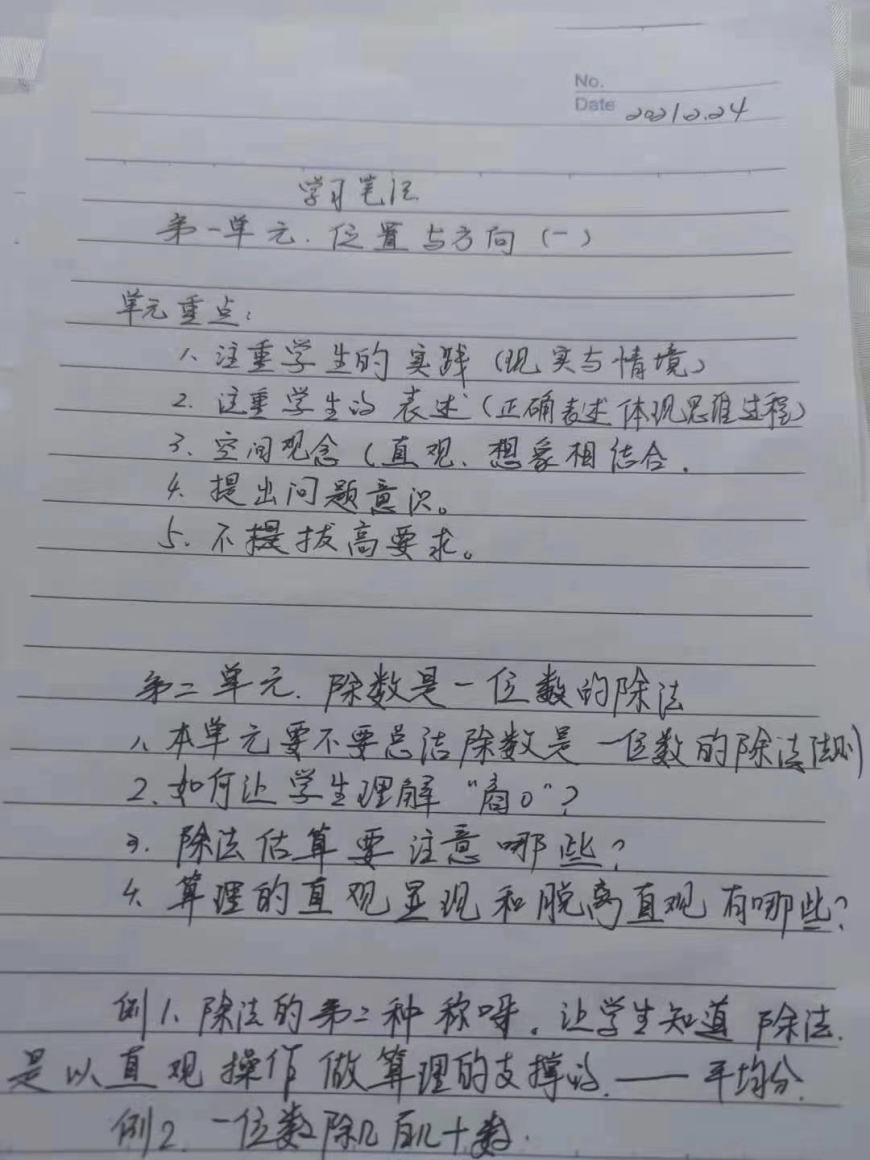 No.
Date 2021.2.24
学习笔记
第一单元.位置与方向(一)
单元重点:
1、注重学生的实践(现实与情境)
2.注重学生的表述(正确表述体现思维过程)
3、空间观念(直观、想象相结合.
4.提出问题意识。
5.不提拔高要求。
第二单元.除数是一位数的除法
1、本单元要不要总结除数是一位数的除法法则
2、如何让学生理解“商0”?
3.除法估算要注意哪些?
4.算理的直观显现和脱离直观有哪些?
例1、除法的第二种称呼。让学生知道除法.
是以直观操作做算理的支撑的.——平均分.
例2.一位数除几百几十数.